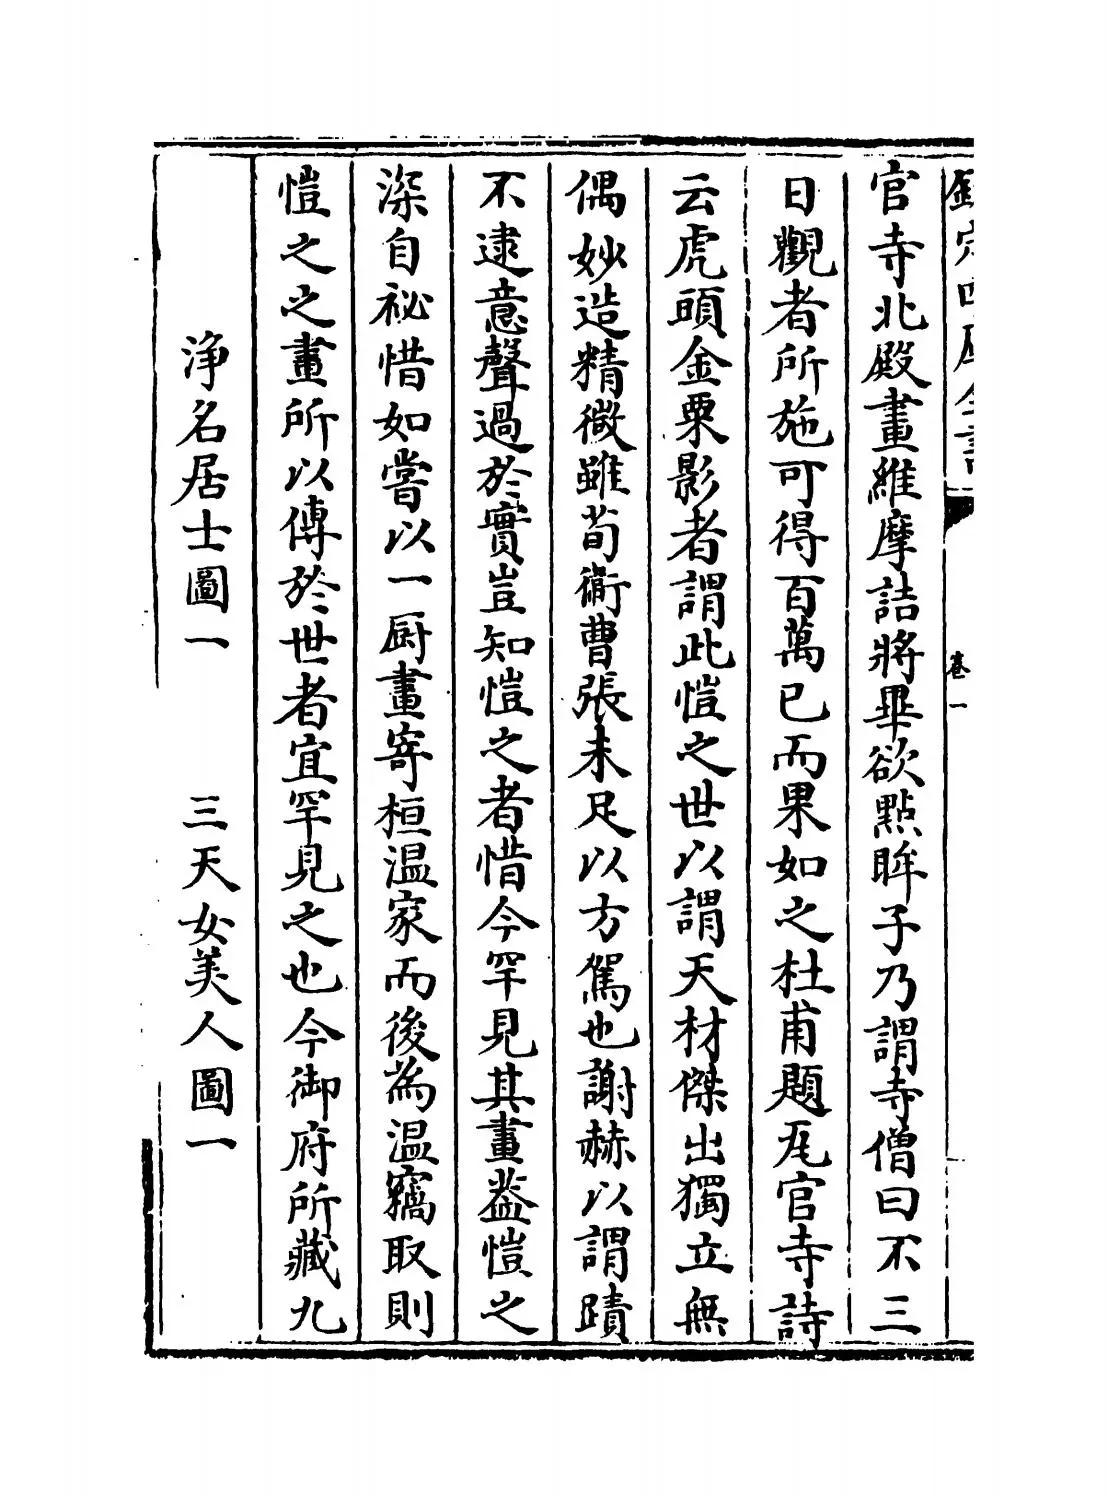 欽定四庫全書
卷一
官寺北殿畫維摩詰將畢欲點眸子乃謂寺僧曰不三
日觀者所施可得百萬已而果如之杜甫題瓦官寺詩
云虎頭金粟影者謂此愷之世以謂天材傑出獨立無
偶妙造精微雖荀衛曹張未足以方駕也謝赫以謂蹟
不逮意聲過於實豈知愷之者惜今罕見其畫葢愷之
深自祕惜如嘗以一厨畫寄桓溫家而後為溫竊取則
愷之之畫所以傳於世者宜罕見之也今御府所藏九
淨名居士圖一　三天女美人圖一